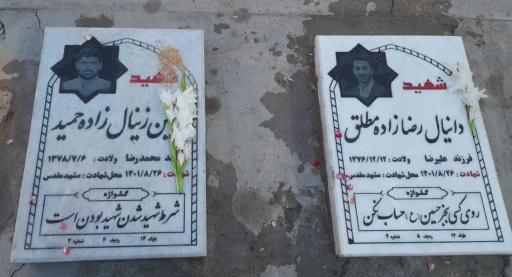 شهید
ین زینال زاده حمید
د محمدرضا ولادت : ۱۳۷۸/۷/۶
شهادت : ۱۴۰۱/۸/۲۶ محل شهادت : مشهد مقدس
گلواژه
شرط شهید شدن شهید بودن است
بلوک ۱۴ ردیف ۶ شماره ۳
شهید
دانیال رضا زاده مطلق
فرزند علیرضا ولادت : ۱۳۷۶/۱۲/۱۲
شهادت : ۱۴۰۱/۸/۲۶ محل شهادت : مشهد مقدس
گلواژه
روی کسی بجز حسین (ع) حساب نکن
بلوک ۱۴ ردیف ۵ شماره ۴